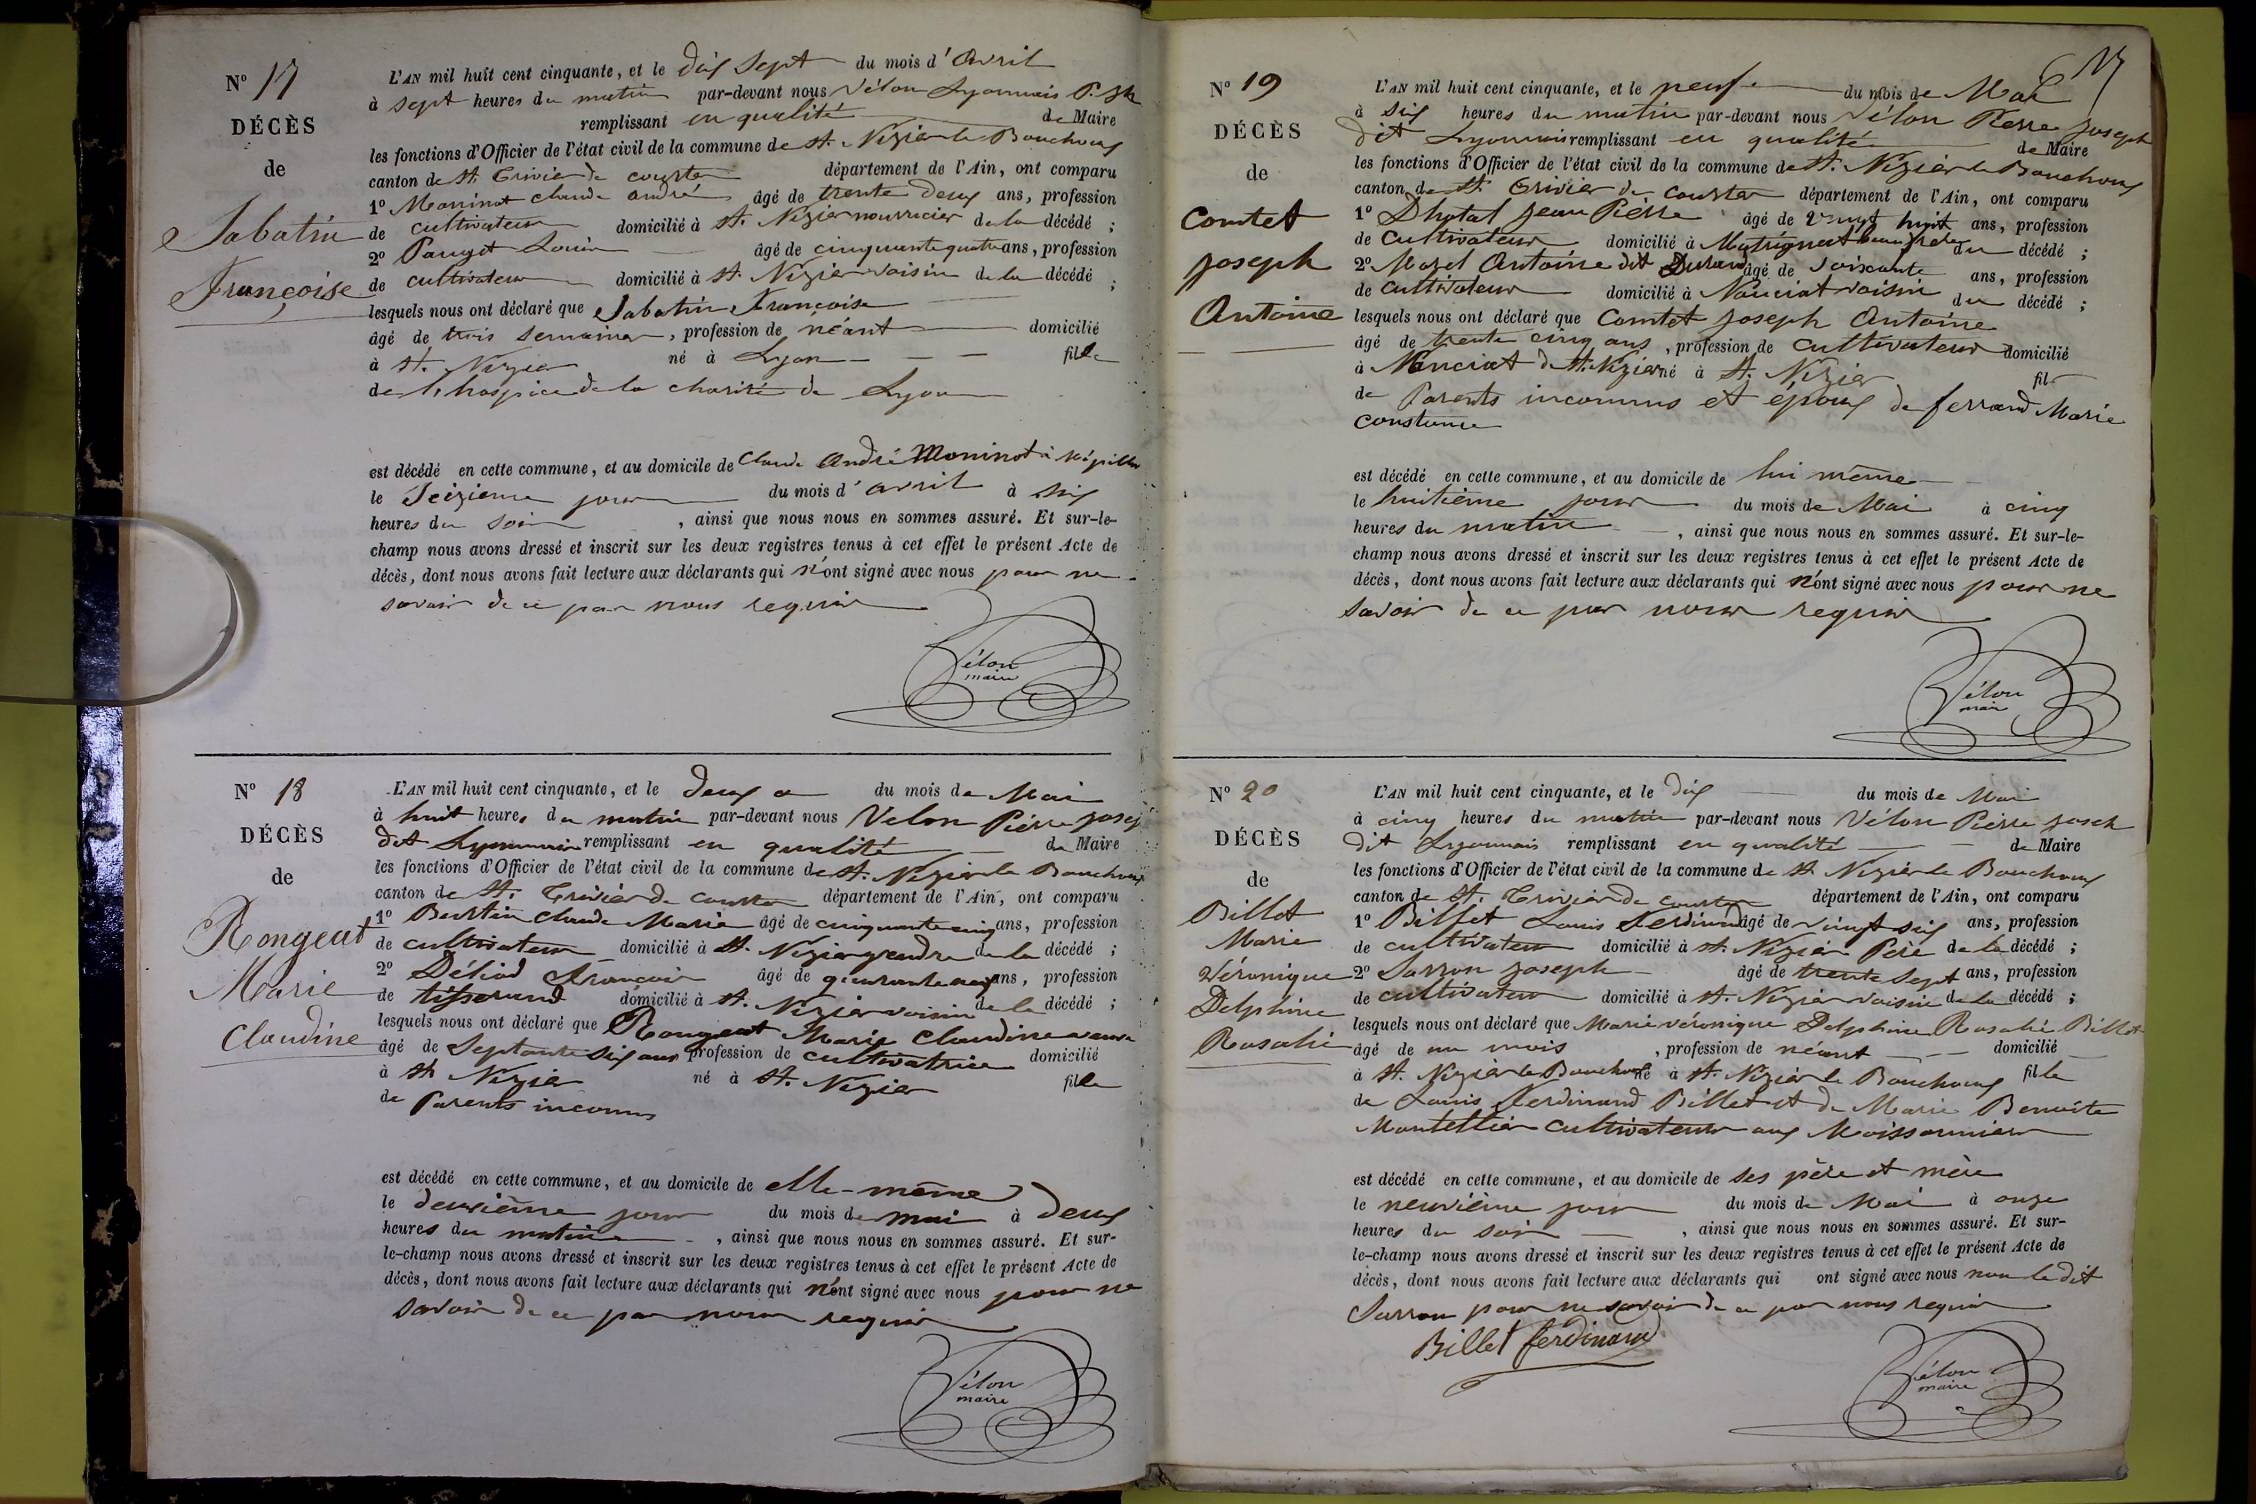 N° 17
DÉCÈS
de
Sabatin
Françoise
L'AN mil huit cent cinquante, et le dix sept du mois d'avril
à sept heures du matin par-devant nous Vélon Lyonnais P. Jh
remplissant en qualité de Maire
les fonctions d'Officier de l'état civil de la commune de St. Nizier le Bouchoux
canton de St Trivier de courtes département de l'Ain, ont comparu
1° Moninot claude andré âgé de trente deux ans, profession
de cultivateur domicilié à St. Nizier nourricier de la décédé ;
2° Pauget Louis âgé de cinquante quatre ans, profession
de cultivateur domicilié à St. Nizier voisin de la décédé ;
lesquels nous ont déclaré que Sabatin Françoise
âgé de trois semaines, profession de néant domicilié
à St. Nizier né à Lyon fille
de l'hospice de la charité de Lyon
est décédé en cette commune, et au domicile de Claude André Moninot à
le Seizieme jour du mois d'avril à six
heures du soir, ainsi que nous nous en sommes assuré. Et sur-le-
champ nous avons dressé et inscrit sur les deux registres tenus à cet effet le présent Acte de
décès, dont nous avons fait lecture aux déclarants qui n'ont signé avec nous pour ne
savoir de ce par nous requis
Vélon
maire
N° 18
DÉCÈS
de
Rongeat
Marie
Claudine
L'AN mil huit cent cinquante, et le deux du mois de Mai
à huit heures du matin par-devant nous Velon Piérre josep
dit Lyonnais remplissant en qualité de Maire
les fonctions d'Officier de l'état civil de la commune de St. Nizier le Bouchoux
canton de St. Trivier de courtes département de l'Ain, ont comparu
1° Bertin claude Marie âgé de cinquante cinq ans, profession
de cultivateur domicilié à St. Nizier gendre de la décédé ;
2° Déliod François âgé de quarante neuf ans, profession
de tisserand domicilié à St. Nizier voisin de la décédé ;
lesquels nous ont déclaré que Rongeat Marie Claudine veuve
âgé de Septante six ans profession de cultivatrice domicilié
à St Nizier né à St. Nizier fille
de Parents inconnus
est décédé en cette commune, et au domicile de elle-même
le deuxième jour du mois de mai à deux
heures du matin, ainsi que nous nous en sommes assuré. Et sur-
le-champ nous avons dressé et inscrit sur les deux registres tenus à cet effet le présent Acte de
décès, dont nous avons fait lecture aux déclarants qui n'ont signé avec nous pour ne
savoir de ce par nous requis
Vélon
maire
N° 19
DÉCÈS
de
Comtet
joseph
Antoine
L'AN mil huit cent cinquante, et le neuf du mois de Mai
à six heures du matin par-devant nous Vélon Piérre joseph
dit Lyonnais remplissant en qualité de Maire
les fonctions d'Officier de l'état civil de la commune de St. Nizier le Bouchoux
canton de St. Trivier de courtes département de l'Ain, ont comparu
1° Dhotal jean Piérre âgé de vingt huit ans, profession
de Cultivateur domicilié à beau frère du décédé ;
2° Mazel Antoine dit Durand âgé de soixante ans, profession
de cultivateur domicilié à Nanciat voisin du décédé ;
lesquels nous ont déclaré que Comtet joseph Antoine
âgé de trente cinq ans, profession de cultivateur domicilié
à Nanciat d St. Nizier né à St. Nizier fils
de Parents inconnus et époux de ferrand Marie
constance
est décédé en cette commune, et au domicile de lui même
le huitième jour du mois de Mai à cinq
heures du matin, ainsi que nous nous en sommes assuré. Et sur-le-
champ nous avons dressé et inscrit sur les deux registres tenus à cet effet le présent Acte de
décès, dont nous avons fait lecture aux déclarants qui n'ont signé avec nous pour ne
savoir de ce par nous requis
Vélon
maire
N° 20
DÉCÈS
de
Billet
Marie
Véronique
Delphine
Rosalie
L'AN mil huit cent cinquante, et le dix du mois de Mai
à cinq heures du matin par-devant nous Vélon Piérre joseh
dit Lyonnais remplissant en qualité de Maire
les fonctions d'Officier de l'état civil de la commune de St Nizier le Bouchoux
canton de St. Trivier de courtes département de l'Ain, ont comparu
1° Billet Louis Ferdinand âgé de vingt six ans, profession
de cultivateur domicilié à St. Nizier Père de la décédé ;
2° Sarron joseph âgé de trente sept ans, profession
de cultivateur domicilié à St. Nizier voisin de la décédé ;
lesquels nous ont déclaré que Marie véronique Delphine Rosalie Billet
âgé de un mois, profession de néant domicilié
à St. Nizier le Bouchoux né à St. Nizier le Bouchoux fille
de Louis Ferdinand Billet et de Marie Benoite
Montellier cultivateurs aux Moissonniers
est décédé en cette commune, et au domicile de ses père et mère
le neuvième jour du mois de Mai à onze
heures du soir, ainsi que nous nous en sommes assuré. Et sur-
le-champ nous avons dressé et inscrit sur les deux registres tenus à cet effet le présent Acte de
décès, dont nous avons fait lecture aux déclarants qui ont signé avec nous non le dit
Sarron pour ne savoir de ce par nous requis
Billet ferdinand
Vélon
maire